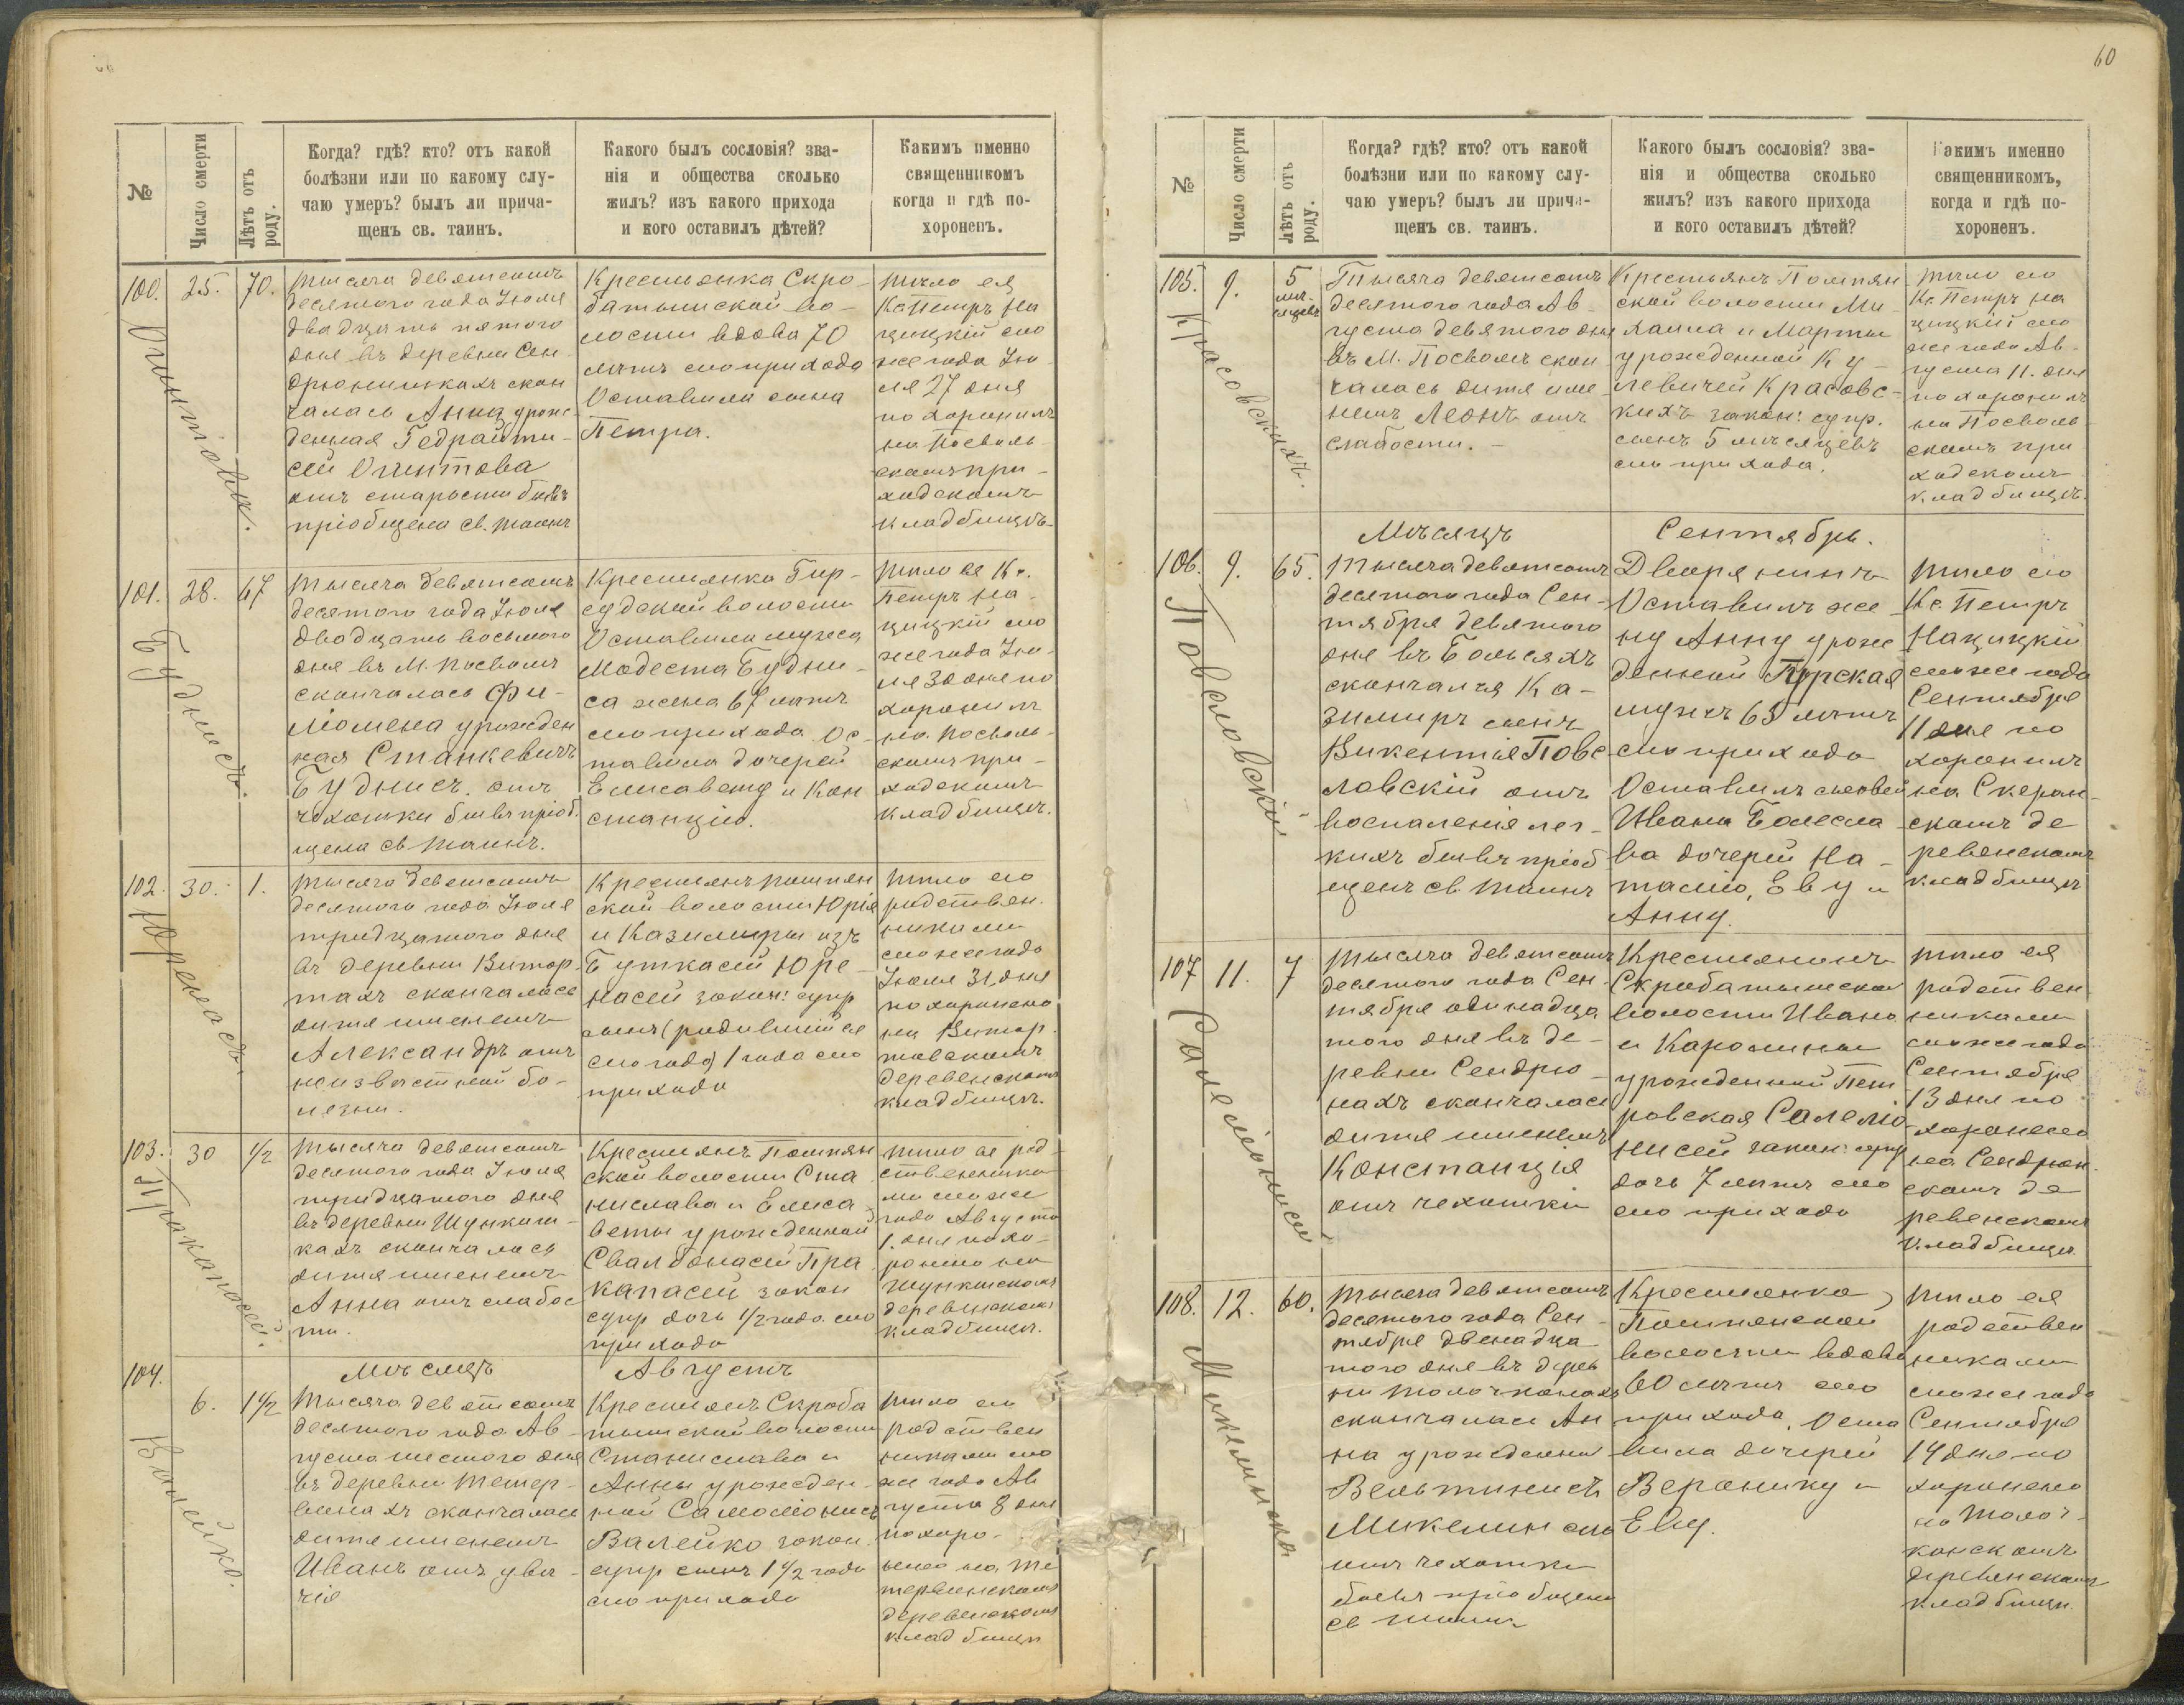 60
№
Число смерти
Лѣтъ отъ роду.
Когда? гдѣ? кто? отъ какой
болѣзни или по какому слу-
чаю умеръ? былъ ли прича-
щенъ св. таинъ.
Какого былъ сословія? зва-
нія и общества сколько
жилъ? изъ какого прихода
и кого оставилъ дѣтей?
Какимъ именно
священникомъ
когда и гдѣ по-
хороненъ.
100.
25.
70.
Тысяча девятсотъ
десятого года Іюля
двадцать пятого
дня въ деревни Сен-
дрюнишкахъ скон
чалась Анна урож-
денная Гедрайти-
сей
отъ старости бывъ
пріобщена св. таинъ
Крестьянка Скро-
батышской во-
лости вдова 70
лѣтъ сего прихода
Оставила сына
Петра.
тѣло ея
Кс Петръ На
цицкій сего
же года Ію
ля 27 дня
похоронилъ
на Посволь-
скомъ при-
ходскомъ
кладбищѣ.
101.
28.
67
Буднисъ.
Тысяча девятсотъ
десятого года Іюля
двадцать восьмого
дня въ М. Посволь
скончалась Фи-
ломена урожден
ная Станкевичъ
Буднисъ. отъ
чахотки бывъ пріоб.
щена св таинъ.
Крестьянка Гир-
судской волости
Оставила мужа
Модеста Будни-
са жена 67 лѣтъ
сего прихода Ос-
тавила дочерей
Елисавету и Кон
станцію.
тѣло ея Кс.
Петръ На-
цицкій сего
же года Ію-
ля 30 дня по
хоронилъ
на Посволь-
скомъ при-
ходскомъ
кладбищѣ.
102.
30.
1.
Юренасъ.
Тысяча девятсотъ
десятого года Іюля
тридцатого дня
въ деревни Витар-
тахъ скончалось
дитя именемъ
Александръ отъ
неизвѣстной бо-
лезни.
Крестьянъ Помпян
ской волости Юрія
и Казимиры изъ
Буткасей Юре-
насей закон: супр
сынъ (родившійся
сего года) 1 года сего
прихода
тѣло его
родствен.
никами
сего же года
Іюля 31 дня
похоронено
на Витар
товскомъ
деревенскомъ
кладбищѣ.
103.
30
1/2
Праканасей.
Тысяча девятсотъ
десятого года Іюля
тридцатого дня
въ деревни Шункиш-
кахъ скончалась
дитя именемъ
Анна отъ слабос
ти.
Крестьянъ Помпян
ской волости Ста
нислава и Елиса
веты урожденной
Свалбонасей Пра
канасей закон
супр дочь 1/2 года сего
прихода
тѣло ея род-
ственника
ми сего же
года Августа
1. дня похо-
ронено на
Шункискомъ
деревенскомъ
кладбищѣ.
Мѣсяцъ Августъ
104.
6.
1 1/2
Валейко.
Тысяча девятсотъ
десятого года Ав-
густа шестого дня
въ деревни Тетер-
винахъ скончалась
дитя именемъ
Иванъ отъ
Крестьянъ Скроба
тышской волости
Станислава и
Анны урожден-
ной Саломонисъ
Валейко закон.
супр сынъ 1 1/2 года
сего прихода
тѣло его
родствен
никами сего
же года Ав
густа 8 дня
похоро-
нено на Те
тервинскомъ
деревенскомъ
кладбищѣ
№
Число смерти
Лѣтъ отъ роду.
Когда? гдѣ? кто? отъ какой
болѣзни или по какому слу-
чаю умеръ? былъ ли прича-
щенъ св. таинъ.
Какого былъ сословія? зва-
нія и общества сколько
жилъ? изъ какого прихода
и кого оставилъ дѣтей?
Какимъ именно
священникомъ,
когда и гдѣ по-
хороненъ.
105.
9.
5 мѣ-
сяцевъ
Красовскихъ.
Тысяча девятсотъ
десятого года Ав-
густа девятого дня
въ М. Посволь скон
чалась дитя име-
немъ Леонъ отъ
слабости. -
Крестьянъ Помпян
ской волости Ми-
хаила и Марты
урожденной Ку-
левичей Красовс-
кихъ закон: супр.
сынъ 5 мѣсяцевъ
сего прихода.
тѣло его
Кс. Петръ На
цицкій сего
же года Ав-
густа 11. дня
похоронилъ
на Посволь
скомъ при
ходскомъ
кладбищѣ.
Мѣсяцъ Сентябрь.
106.
9.
65.
Повсловскій
Тысяча девятсотъ
десятого года Сен-
тября девятого
дня въ Больсяхъ
скончался Ка-
зимиръ сынъ
Викентія Повс-
ловскій отъ
воспаленія лег-
кихъ бывъ пріоб
щенъ св. таинъ
Дворянинъ
Оставилъ же-
ну Анну урож
денной Пурская
мужъ 65 лѣтъ
сего прихода
Оставилъ сыновей
Ивана Болесла
ва дочерей На-
талію, Еву и
Анну.
тѣло его
Кс. Петръ
Нацицкій
сего же года
Сентября
11 дня по
хоронилъ
на Скеран-
скомъ де
ревенскомъ
кладбищѣ
107
11.
7
Тысяча девятсотъ
десятого года Сен-
тября одинадца
того дня въ де-
ревни Сендрю-
нахъ скончалась
дитя именемъ
Констанція
отъ чахотки
Крестьянинъ
Скробатышской
волости Ивана
и Каролины
урожденной Пет
ровская Салемо-
нисей закон: супр
дочь 7 лѣтъ сего
сего прихода
тѣло ея
родствен
никами
сего же года
Сентября
13 дня по
хоронено
на Сендрюн.
скомъ де
ревенскомъ
кладбищѣ
108.
12.
60.
Тысяча девятсотъ
десятого года Сен-
тября двенадца
того дня въ дерев
ни Толочконахъ
скончалась Ан
на урожденна
Вельтинисъ
отъ чахотки
бывъ пріобщена
св таинъ
Крестьянка
Помпянской
волости вдова
60 лѣтъ сего
прихода. Оста
вила дочерей
Веронику и
Еву.
тѣло ея
родствен
никами
сего же года
Сентября
14 дня по
хоронено
на Толоч-
конскомъ
деревенскомъ
кладбищѣ.